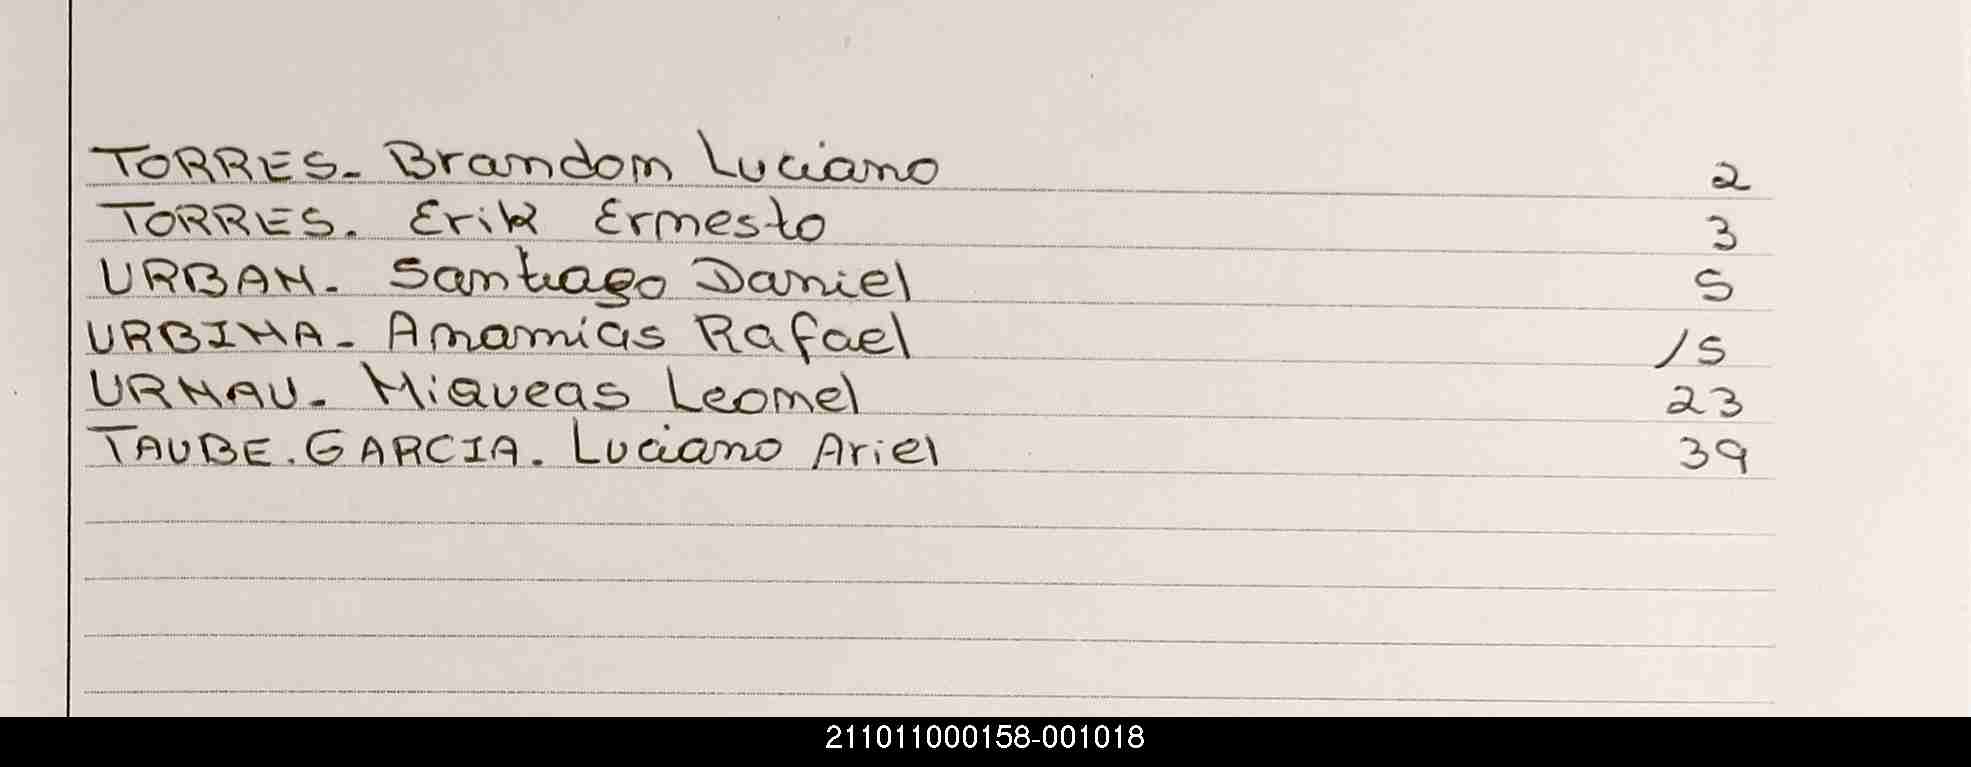 TORRES. Brandon Luciano 2
TORRES. Erik Ernesto 3
URBAN. Santiago Daniel 5
URBINA. Ananias Rafael 15
URNAU. Miqueas Leonel 23
TAUBE. GARCIA. Luciano Ariel 39
211011000158-001018